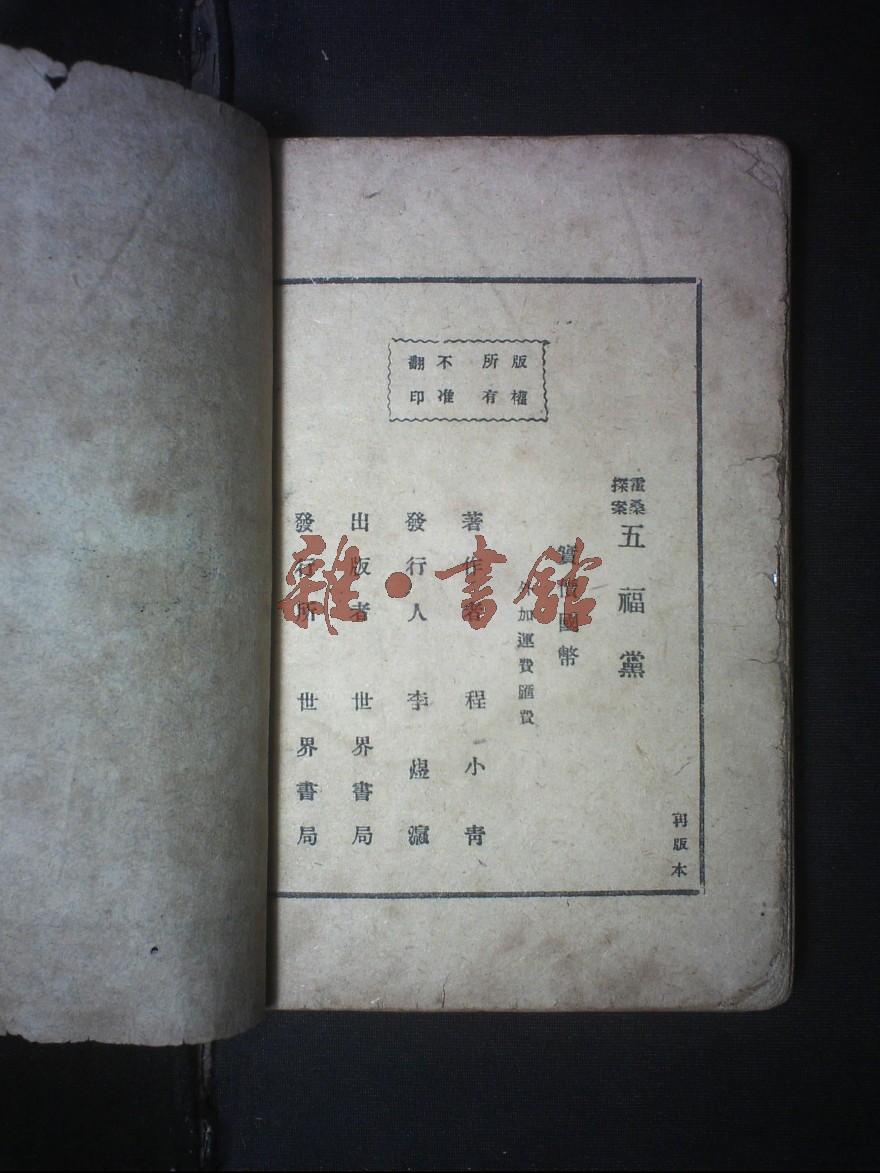 版權
所有
不准
翻印
霍桑
探案
五福黨
實價國幣
外加運費匯費
著作者 程小青
發行人 李煜瀛
出版者 世界書局
發行所 世界書局
版本
雜·書館